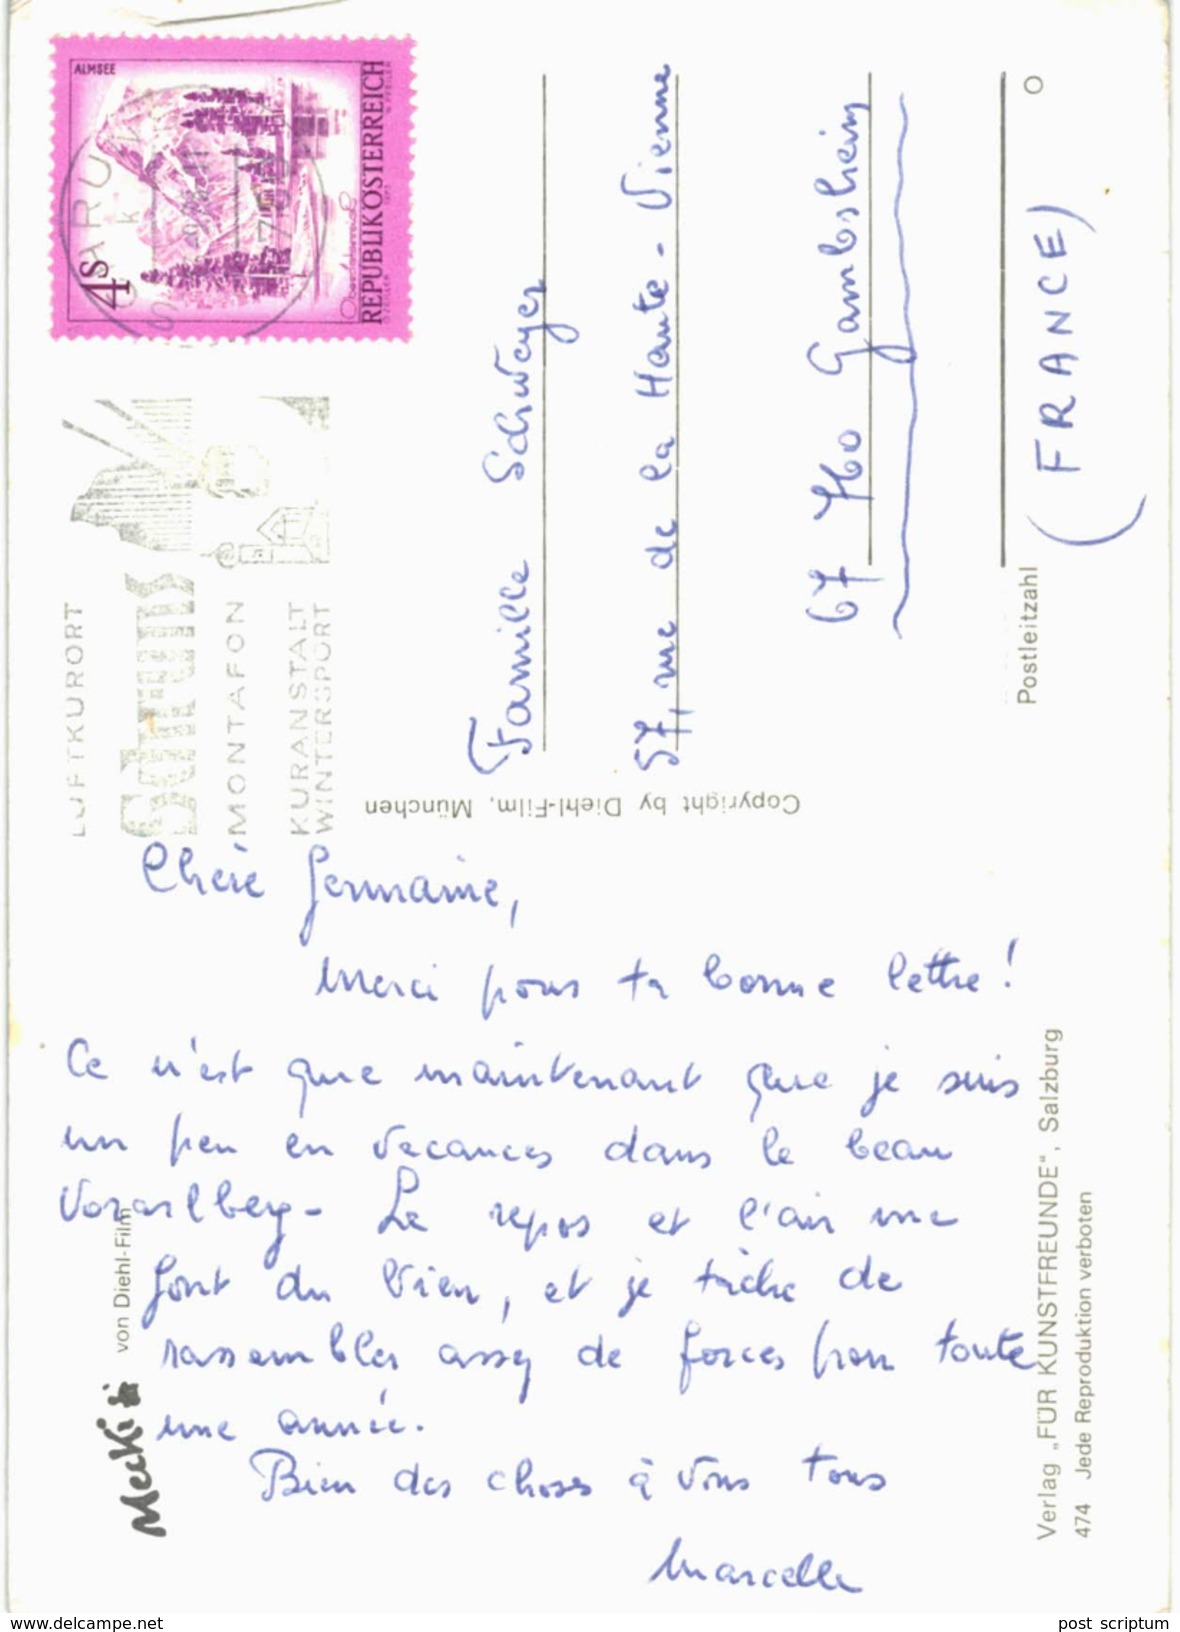 ALMSEE
4S
REPUBLIK ÖSTERREICH
LUFTKURORT
Schruns
MONTAFON
KURANSTALT
WINTERSPORT
Famille Schweyer
57, rue de la Haute-Vienne
67 760 Gambsheim
Postleitzahl
(FRANCE)
Copyright by Diehl-Film, München
Chère Germaine,
Merci pour ta bonne lettre!
Ce n'est que maintenant que je suis
un peu en vacances dans le beau
Vorarlberg - Le repos et l'air me
font du bien, et je tâche de
rassembler assez de forces pour toute
une année.
Bien des choses à vous tous
Marcelle
Mecki
von Diehl-Film
Verlag „FÜR KUNSTFREUNDE", Salzburg
474 Jede Reproduktion verboten
www.delcampe.net
post scriptum